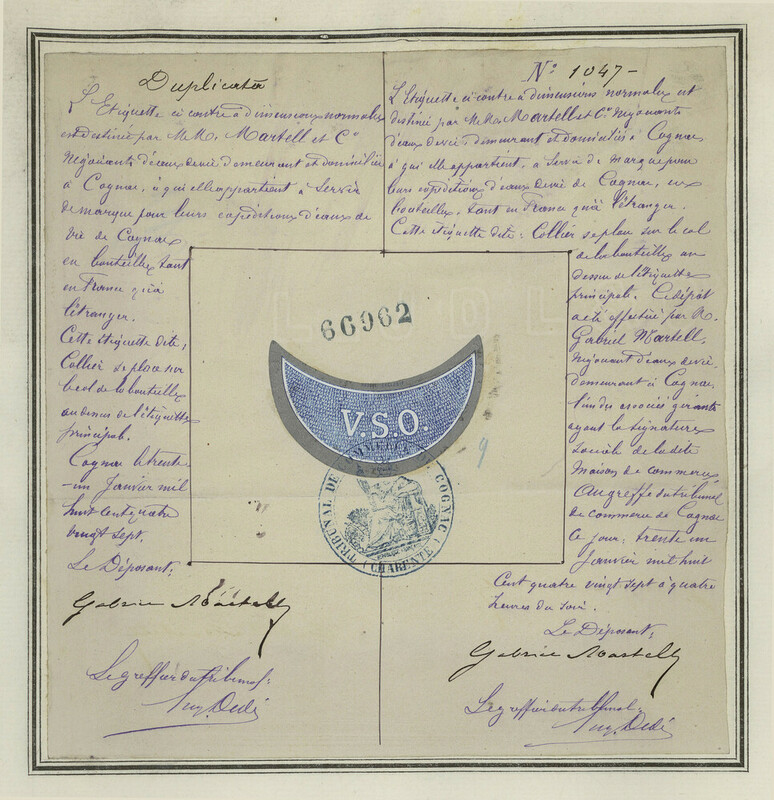 Duplicata
L'Etiquette ci contre à dimensions normales
est destinée par M.M. Martell et Cº
Négociants d'eaux de vie, demeurant et domiciliés
à Cognac, à qui elle appartient à Servir
de marque pour leurs expéditions d'eaux de
vie de Cognac
en bouteilles tant
en France qu'à
l'étranger.
Cette étiquette dite;
Collier se place sur
le col de la bouteille
au dessus de l'étiquette
principal.
Cognac le trente
un Janvier mil
huit cent quatre
vingt sept.
Le Déposant;
Gabriel Martell
Le greffier du tribunal:
Dedé
Nº 1047 -
L'Etiquette ci contre à dimensions normales est
destinée par M.M. Martell et Cº Négociants
d'eaux de vie, demeurant et domiciliés à Cognac
à qui elle appartient, à Servir de marque pour
leurs expéditions d'eaux de vie de Cognac, en
bouteilles, tant en France qu'à l'étranger.
Cette étiquette dite: Collier se place sur le col
de la bouteille au
dessus de l'étiquette
principal. Ce dépôt
a été effectué par M.
Gabriel Martell,
négociant d'eaux de vie,
demeurant à Cognac,
l'un des associés gérants
ayant la signature
sociale de la dite
maison de commerce
Au greffe du tribunal
de commerce de Cognac
Ce jour: trente un
Janvier mil huit
Cent quatre vingt sept à quatre
heures du soir.
Le Déposant;
Gabriel Martell
Le greffier du tribunal:
Dedé
66962
V.S.O.
TRIBUNAL DE COMMERCE COGNAC
(CHARENTE)
9